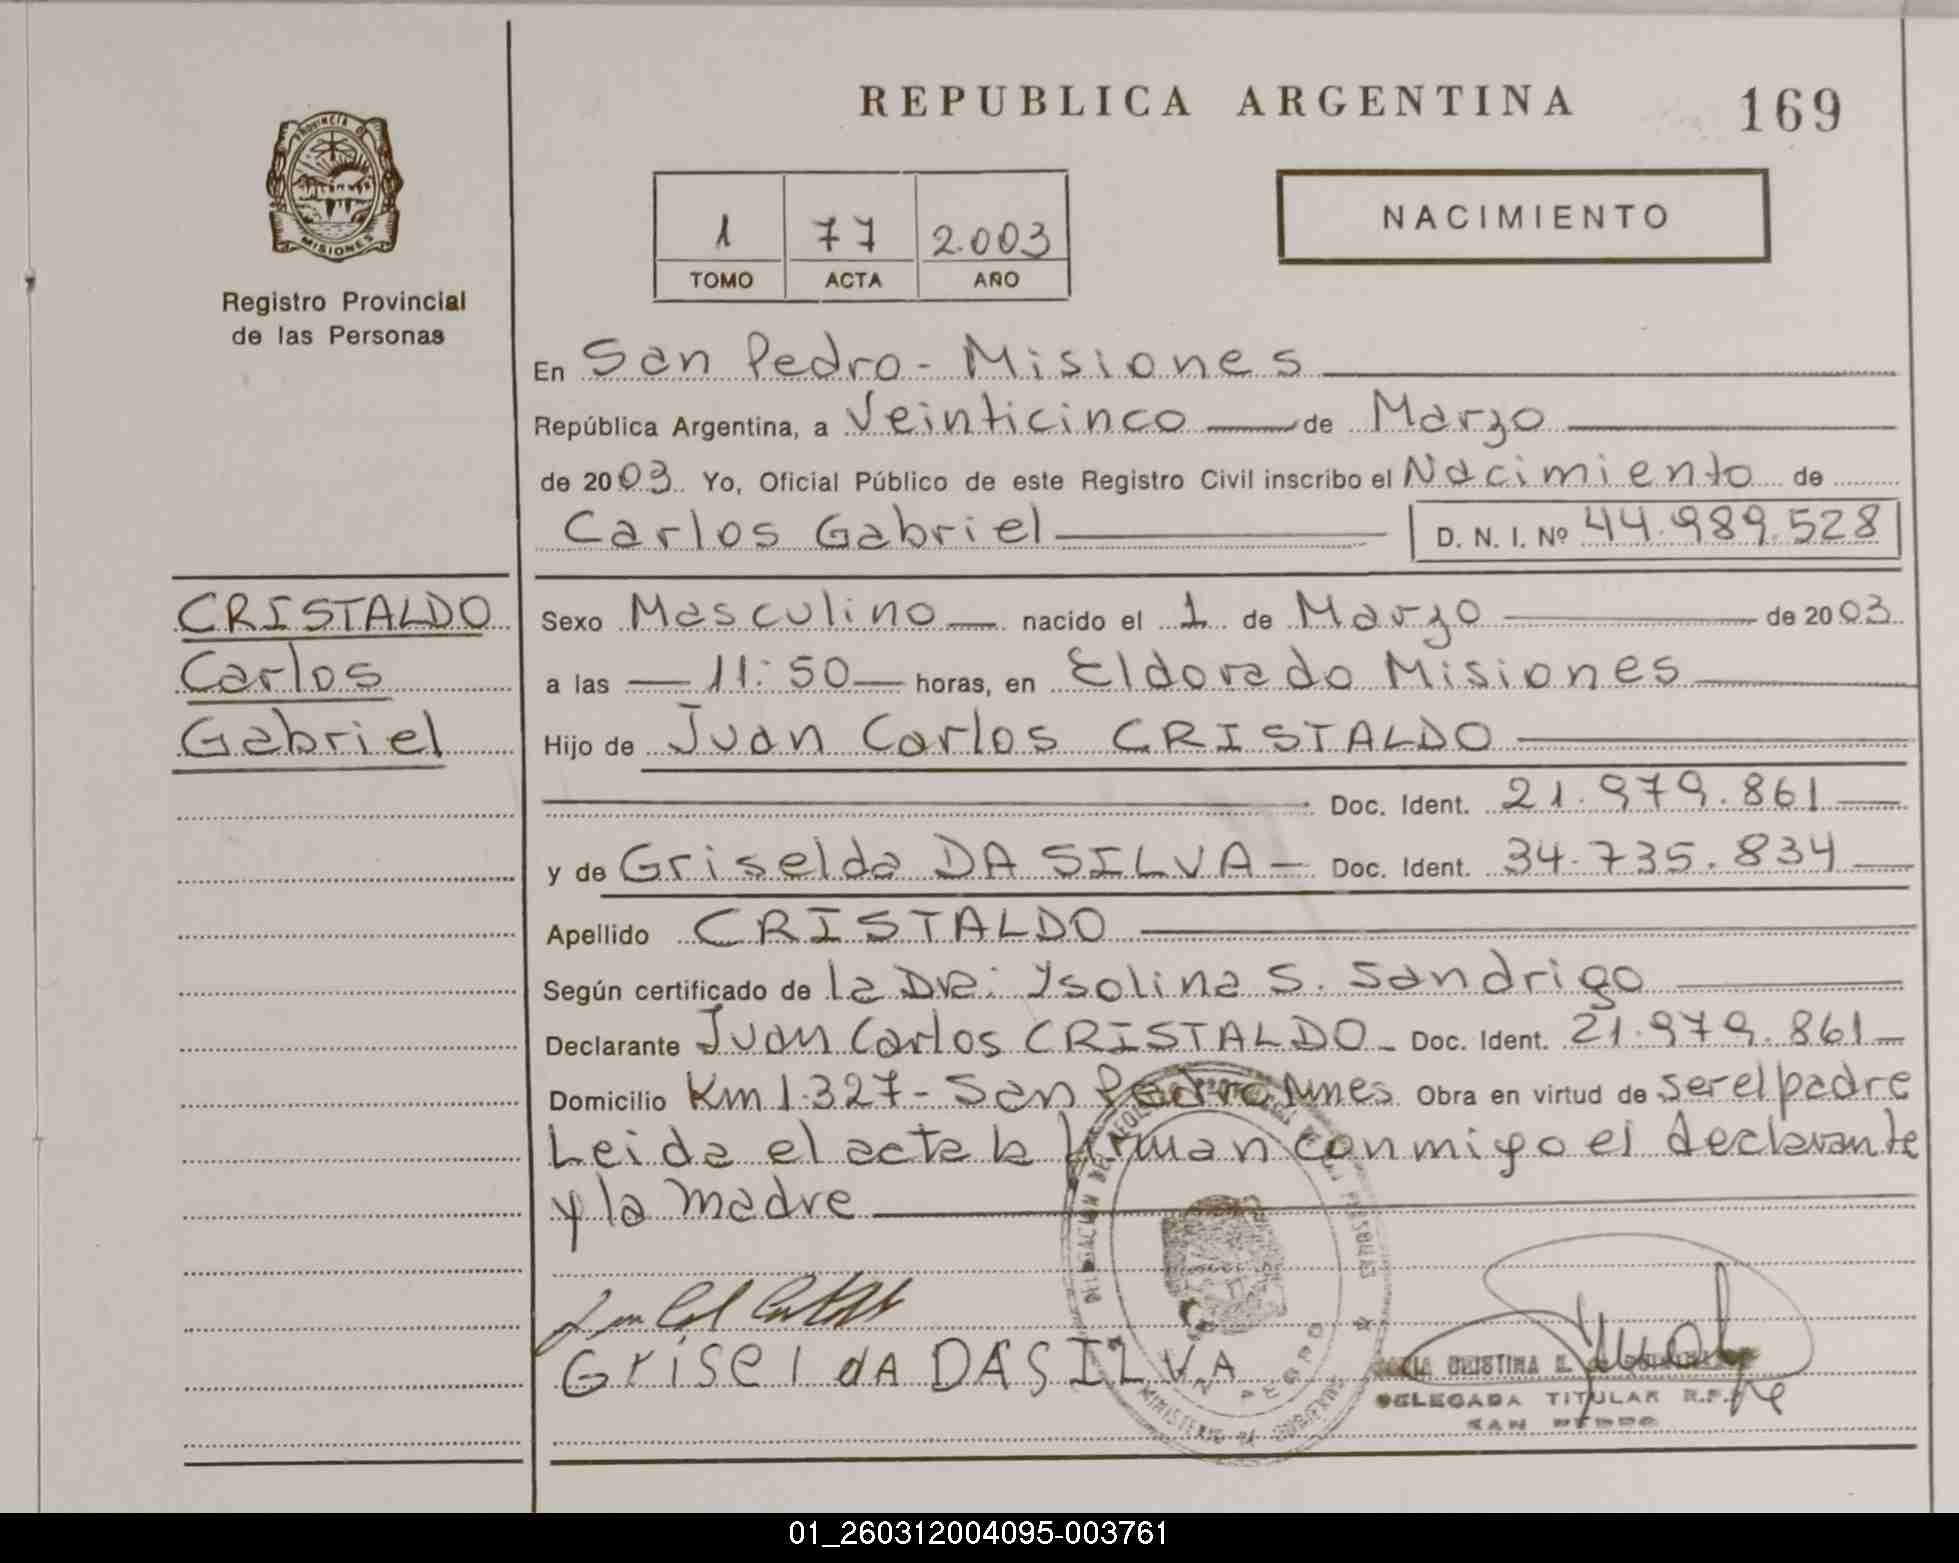 REPUBLICA ARGENTINA
169
PROVINCIA DE
MISIONES
Registro Provincial
de las Personas
1 77 2.003
TOMO ACTA AÑO
NACIMIENTO
En San Pedro - Misiones
República Argentina, a Veinticinco de Marzo
de 2003 Yo, Oficial Público de este Registro Civil inscribo el Nacimiento de
Carlos Gabriel D. N. I. Nº 44.989.528
CRISTALDO
Carlos
Gabriel
Sexo Masculino nacido el 1 de Marzo de 2003
a las 11:50 horas, en Eldorado Misiones
Hijo de Juan Carlos CRISTALDO
Doc. Ident. 21.979.861
y de Griselda DA SILVA Doc. Ident. 34.735.834
Apellido CRISTALDO
Según certificado de la Dra: Ysolina S. Sandrigo
Declarante Juan Carlos CRISTALDO - Doc. Ident. 21.979.861
Domicilio Km 1.327 - San Pedro Mnes Obra en virtud de ser el padre
Leida el acta la firman conmigo el declarante
y la madre
Griselda DASILVA
CRISTINA
DELEGADA TITULAR R.P.
SAN PEDRO
MINISTERIO DE GOBIERNO
SAN PEDRO
01_260312004095-003761